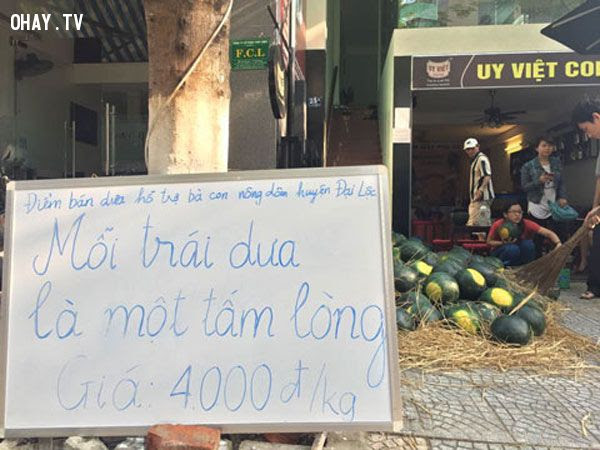 OHAY.TV
F.C.L
UY VIỆT CO
Điểm bán dưa hỗ trợ bà con nông dân huyện Đại Lộc
Mỗi trái dưa
là một tấm lòng
Giá: 4.000 đ/kg